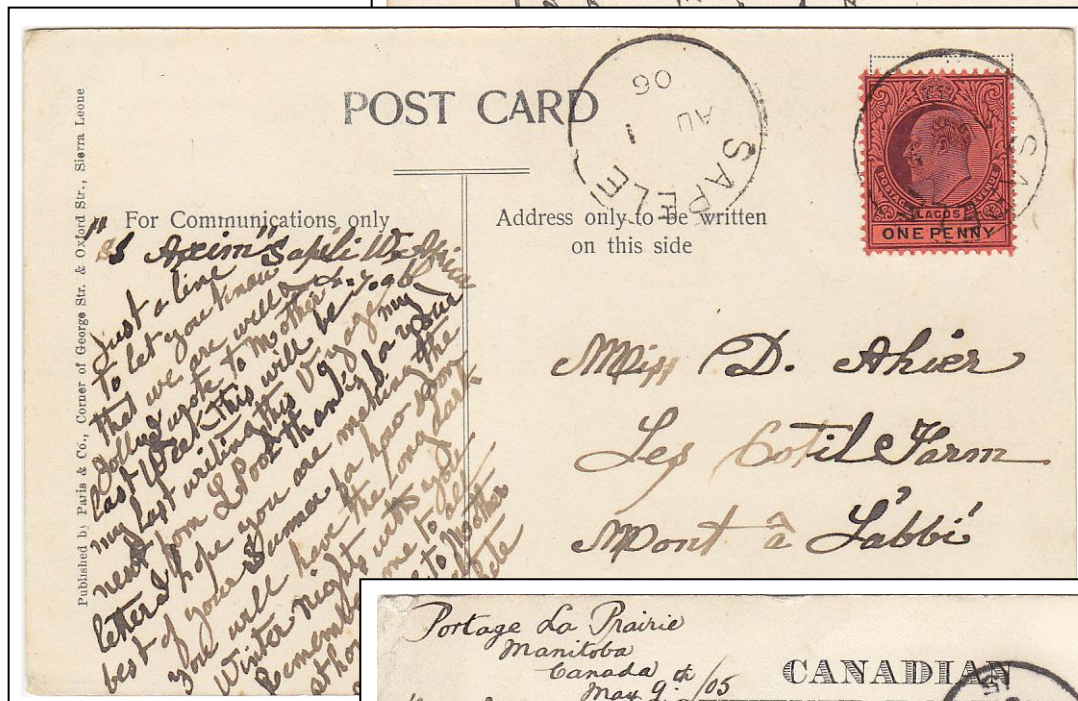 Published by Paris & Co., Corner of George Str. & Oxford Str., Sierra Leone
POST CARD
SAPELE
AU 1
06
POSTAGE REVENUE
LAGOS
ONE PENNY
For Communications only
Address only to be written
on this side
"SS Axim" Sapeli W. Africa
Just a line
to let you know
that we are well
wrote to Mother
last Week This will be
my last writing this Voyage my
next from LPool thanks for your
letter I hope you are making the
best of your Summer for how soon
you will have the long dark
Winter nights with you
Remember me to all
to Mother
Miss D. Ahier
Les Cotil Farm
Mont à L'abbé
Portage La Prairie
Manitoba
Canada
May 9th/05
CANADIAN